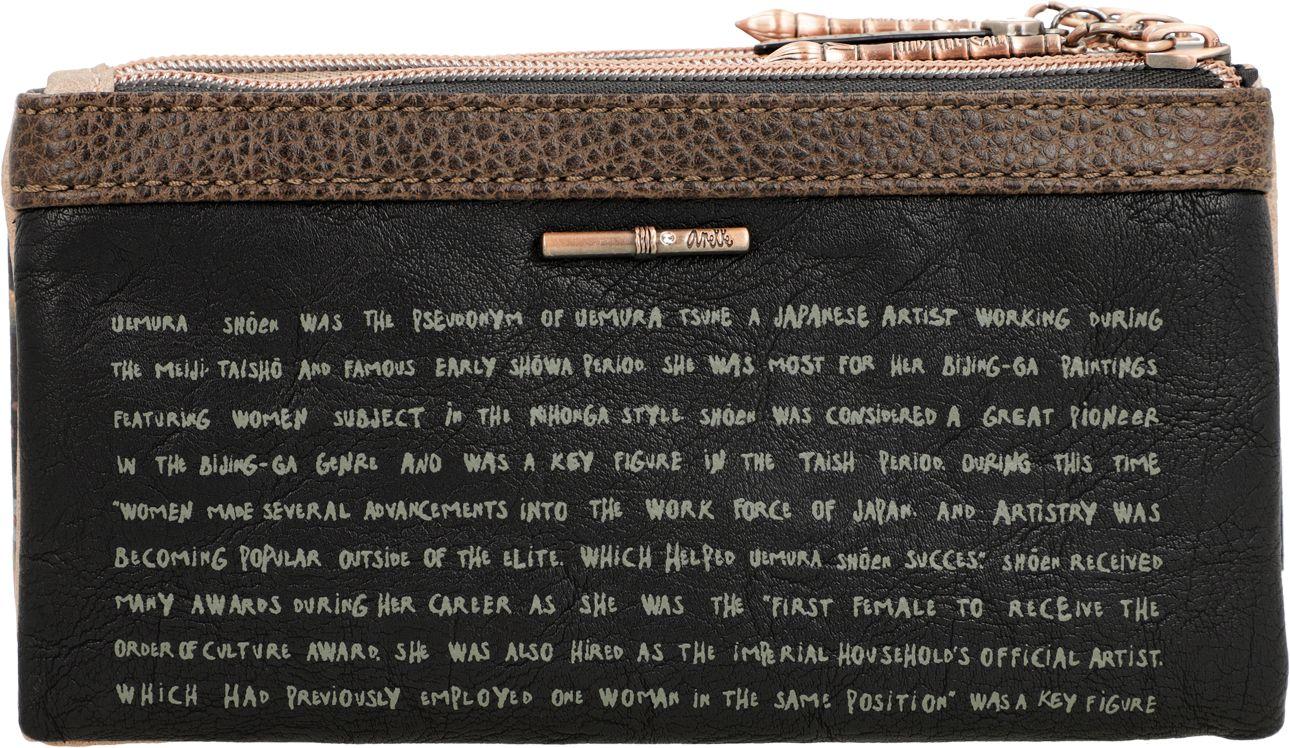 Anekke
UEMURA SHŌEN WAS THE PSEUDONYM OF UEMURA TSUNE A JAPANESE ARTIST WORKING DURING
THE MEIJI. TAISHŌ AND FAMOUS EARLY SHŌWA PERIOD. SHE WAS MOST FOR HER BIJING-GA PAINTINGS
FEATURING WOMEN SUBJECT IN THE NIHONGA STYLE SHŌEN WAS CONSIDERED A GREAT PIONEER
IN THE BIJING-GA GENRE AND WAS A KEY FIGURE IN THE TAISH PERIOD. DURING THIS TIME
"WOMEN MADE SEVERAL ADVANCEMENTS INTO THE WORK FORCE OF JAPAN. AND ARTISTRY WAS
BECOMING POPULAR OUTSIDE OF THE ELITE. WHICH HELPED UEMURA SHŌEN SUCCES". SHŌEN RECEIVED
MANY AWARDS DURING HER CAREER AS SHE WAS THE "FIRST FEMALE TO RECEIVE THE
ORDER OF CULTURE AWARD. SHE WAS ALSO HIRED AS THE IMPERIAL HOUSEHOLD'S OFFICIAL ARTIST.
WHICH HAD PREVIOUSLY EMPLOYED ONE WOMAN IN THE SAME POSITION" WAS A KEY FIGURE